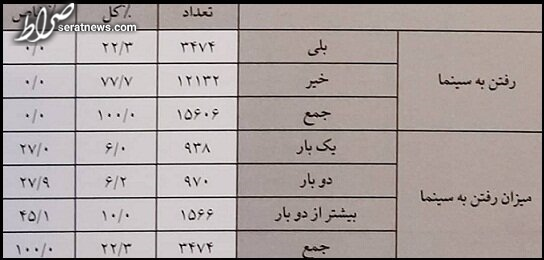 صراط
seratnews.com
تعداد ٪کل
بلی ۳۴۷۴ ۲۲/۳ ۰/۰
رفتن به سینما خیر ۱۲۱۳۲ ۷۷/۷ ۰/۰
جمع ۱۵۶۰۶ ۱۰۰/۰ ۰/۰
یک بار ۹۳۸ ۶/۰ ۲۷/۰
دو بار ۹۷۰ ۶/۲ ۲۷/۹
میزان رفتن به سینما بیشتر از دو بار ۱۵۶۶ ۱۰/۰ ۴۵/۱
جمع ۳۴۷۴ ۲۲/۳ ۱۰۰/۰